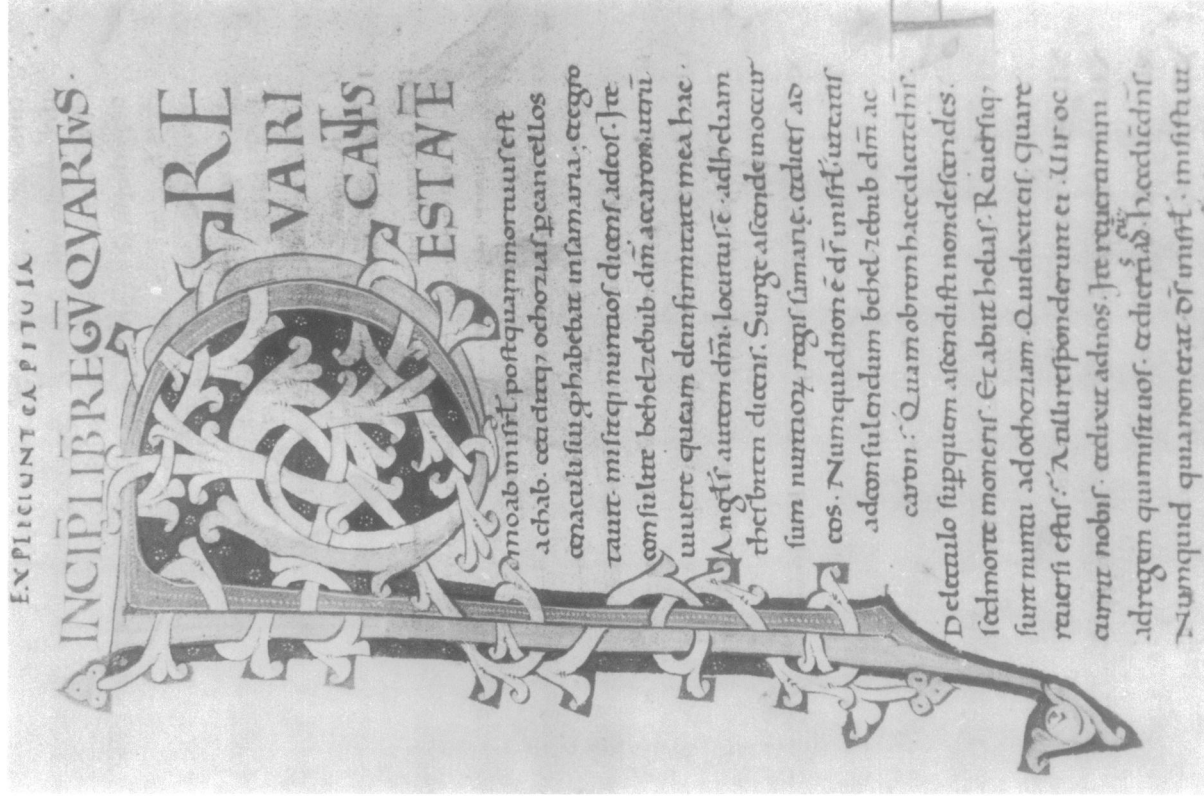 EXPLICIUNT CAPITULA
INCIP̄ LIB̄ REGV̄ QVARTVS·
PRE
VARI
CATVS
EST AVTE̅
moab in isrl̄. postquam mortuus est
achab. ceciditq; ochozias p̱ cancellos
cenaculi sui q̱ habebat in samaria, & egro
tauit. misitq; nuntios dicens ad eos. Ite
consulite behelzebub. dm̄ accaron. utrū
uiuere queam de infirmitate mea hac.
Angl̄s autem dn̄i. locutus ē. ad heliam
thesbiten dicens. Surge ascende in occur
sum nuntioꝝ regis samarię. & dices ad
eos. Numquid non ē ds̄ in isrl̄. ut eatis
ad consulendum behelzebub dm̄ ac
caron? Quam obrem haec dicit dn̄s.
De lectulo sup̱ quem ascendisti non descendes.
sed morte moneris. Et abiit helias. Reuersiq;
sunt nuntii ad ochoziam. Qui dixit eis. quare
reuersi estis? At illi responderunt ei. Uir oc
currit nobis. & dixit ad nos. Ite reuertimini
ad regem qui misit uos. & dicetis ei. haec dic̄ dn̄s.
Numquid quia non erat ds̄ in isrl̄. misisti ut